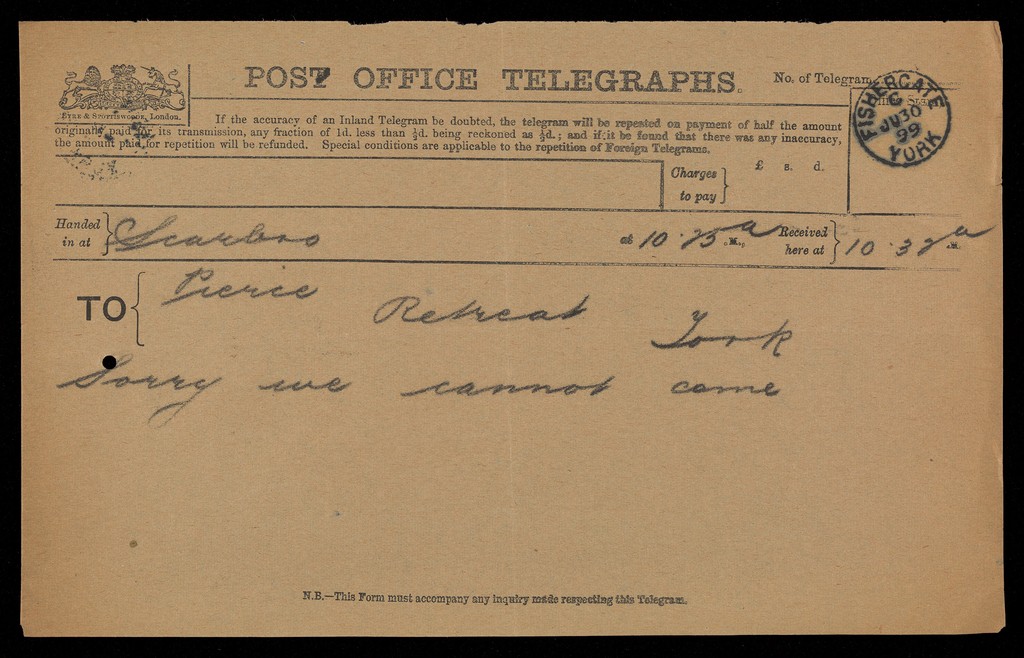 POST OFFICE TELEGRAPHS.
No. of Telegram
EYRE & SPOTTISWOODE, London.
If the accuracy of an Inland Telegram be doubted, the telegram will be repeated on payment of half the amount
originally paid for its transmission, any fraction of 1d. less than ½d. being reckoned as ½d.; and if it be found that there was any inaccuracy,
the amount paid for repetition will be refunded. Special conditions are applicable to the repetition of Foreign Telegrams.
FISHERGATE
C
JU 30
99
YORK
Charges
to pay
£ s. d.
Handed
in at
Scarbro
at 10.25 a .M.,
Received
here at
10.32 a .M.
TO
Pierce
Retreat York
Sorry we cannot come
N.B.—This Form must accompany any inquiry made respecting this Telegram.